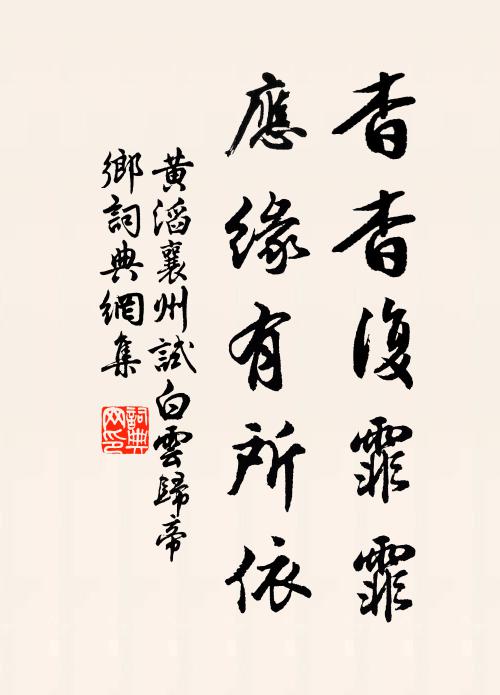 杳杳復霏霏
應緣有所依
黃滔襄州試白雲歸帝
鄉詞典網集
詞典
网印